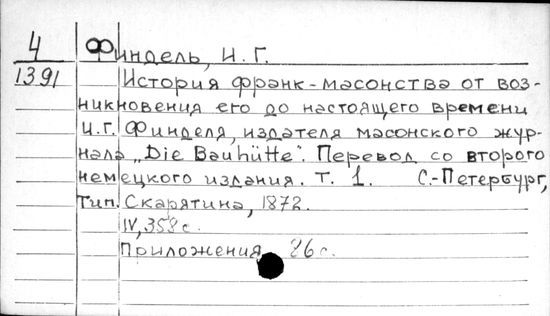 4 Финдель, И. Г.
1391 История франк-масонства от воз-
никновения его до настоящего времени
И.Г. Финделя, издателя масонского жур-
нала „Die Bauhütte". Перевод со второго
немецкого издания. т. 1. С.-Петербург,
Тип. Скарятина, 1872.
IV, 358 с.
Приложения 86 с.